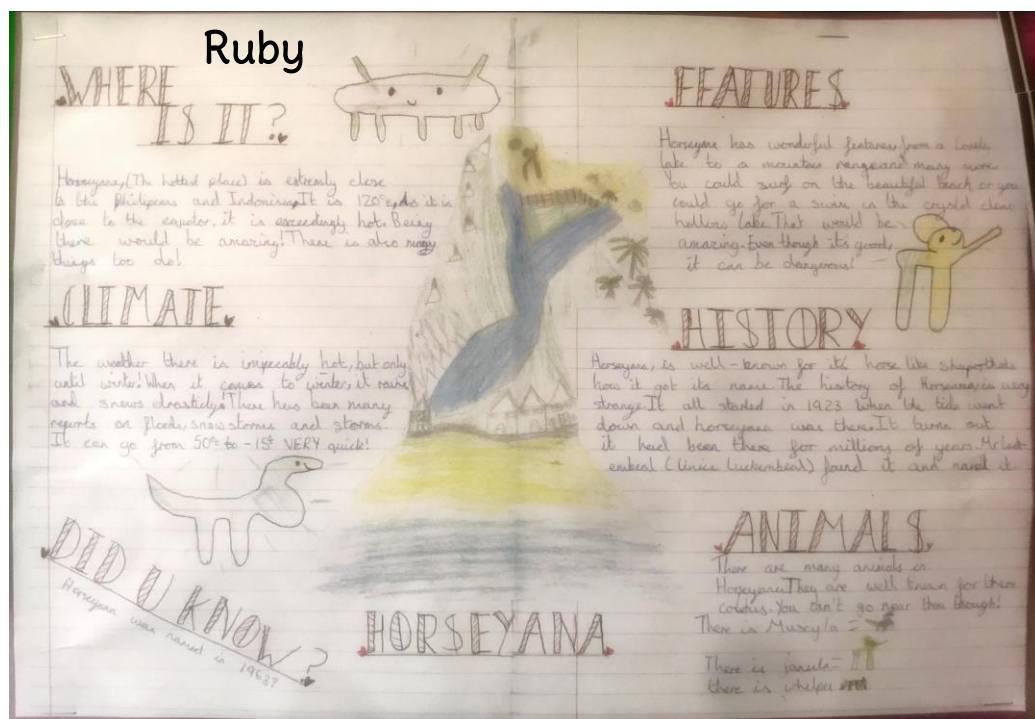 Ruby
WHERE
IS IT?
Horseyana, (The hottest place) is extremly close
to the Philipeans and Indonisia. It is 120°c, As it is
close to the equator, it is exceedingly hot. Being
there would be amazing! There is also many
things too do!
CLIMATE
The weather there is impecably hot, but only
until winter! When it comes to winter, it rains
and snows drastictly! There has been many
reports on floods, snowstorms and storms.
It can go from 50°c to -15°c VERY quick!
DID U KNOW?
Horseyana was named in 1963?
HORSEYANA
FEATURES
Horseyana has wonderful features, from a lovely
lake to a mountain range and many more.
You could surf on the beautiful beach or you
could go for a swim in the crystal clear
lake. That would be
amazing. Even though it's good,
it can be dangerous!
HISTORY
Horseyana, is well-known for it's horse like shape thats
how it got its name. The history of Horseyana is very
strange. It all started in 1923 when the tide went
down and horseyana was there. It turns out
it had been there for milliions of years. Mr
found it and named it
ANIMALS
There are many animals in
Horseyana. They are well known for there
You can't go near them though!
There is Muscyla =
There is janula =
there is whelpee